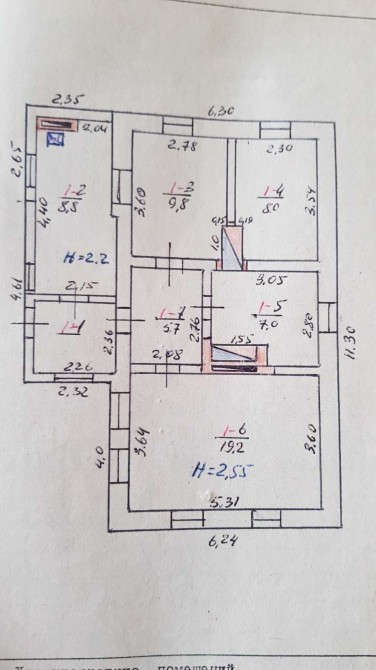 2,35
6,30
2,04
2,78
2,30
2,65
1-2
8,8
4,40
1-3
9,8
3,60
1-4
8,0
3,54
0,15
0,19
1,0
H=2.2
4,61
2,15
3,05
1-7
5,7
1-5
7,0
2,76
2,80
2,36
1-1
11.30
1,55
2,26
2,08
2,32
4,0
3,64
1-6
19,2
3,60
H=2,55
5,31
6,24
помещений